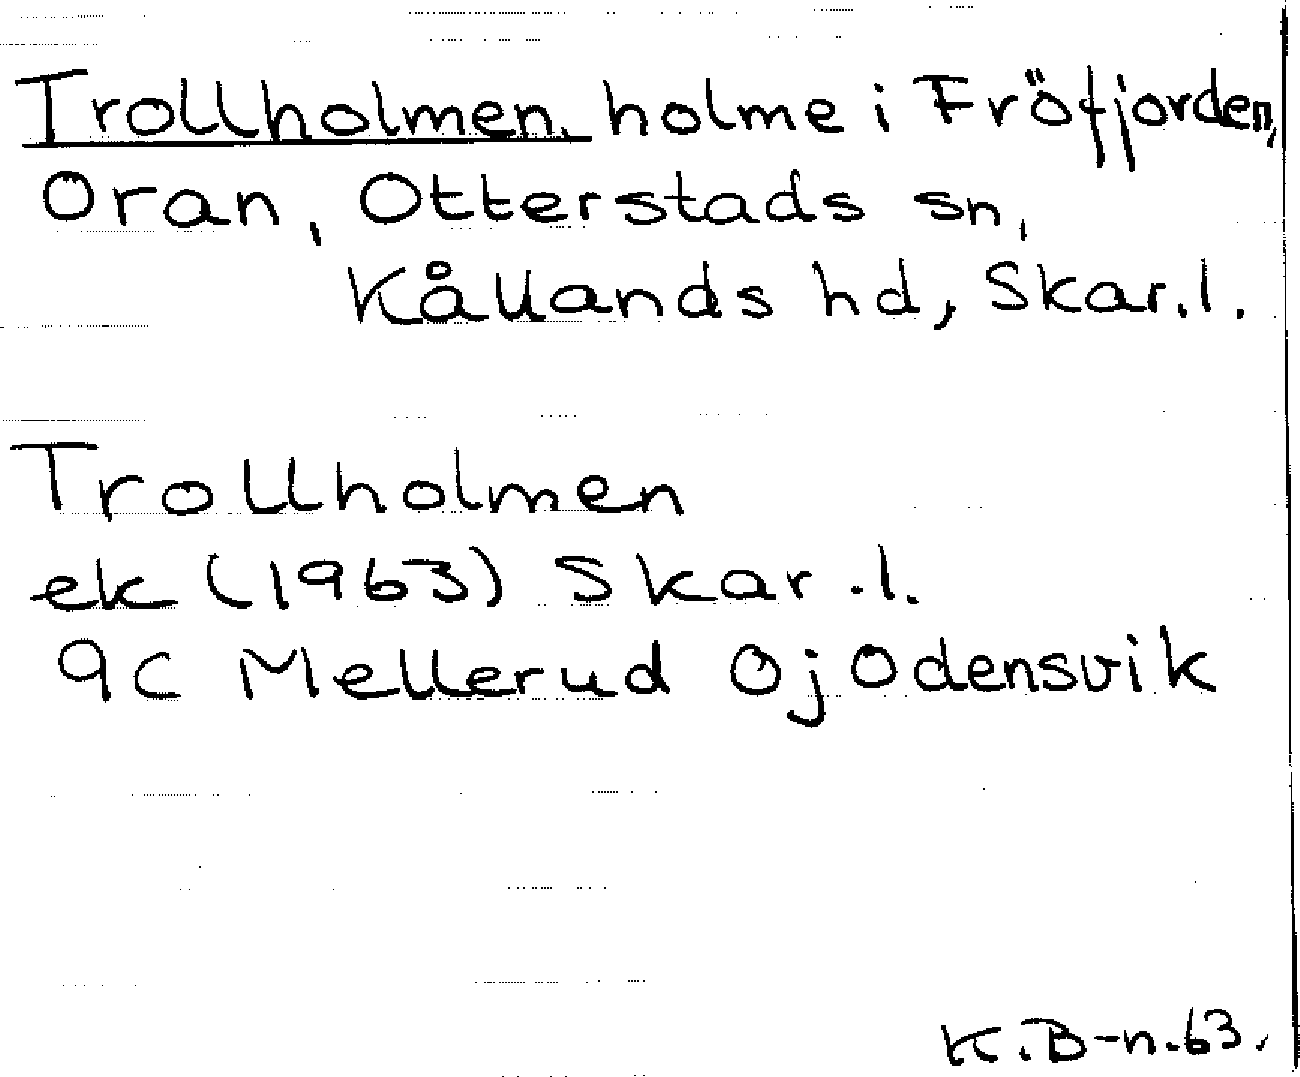 Trollholmen, holme i Fröfjorden,
Oran, Otterstads sn,
Kållands hd, Skar.l.
Trollholmen
ek (1963) Skar.l.
9C Mellerud 0j Odensvik
K.B-n.63.